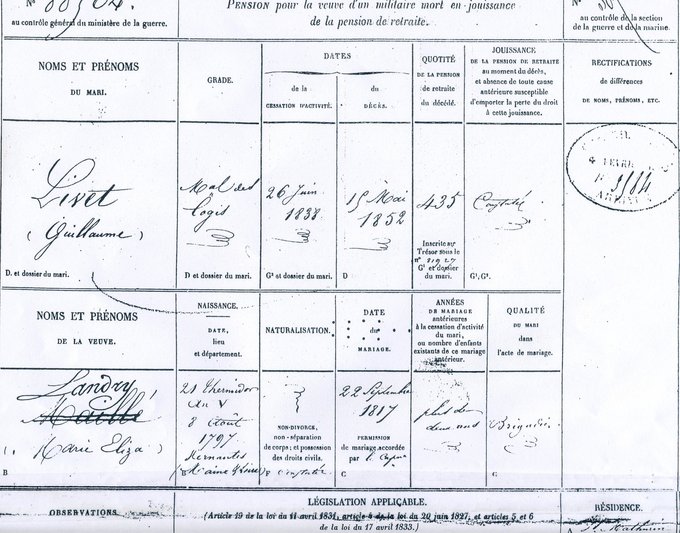 PENSION pour la veuve d'un militaire mort en jouissance
de la pension de retraite.
au contrôle général du ministère de la guerre.
au contrôle de la section
de la guerre et de la marine.
NOMS ET PRÉNOMS
DU MARI.
GRADE.
DATES
de la
CESSATION D'ACTIVITÉ.
du
DÉCÈS.
QUOTITÉ
DE LA PENSION
de retraite
du décédé.
JOUISSANCE
DE LA PENSION DE RETRAITE
au moment du décès,
et absence de toute cause
antérieure susceptible
d'emporter la perte du droit
à cette jouissance.
RECTIFICATIONS
de différences
DE NOMS, PRÉNOMS, ETC.
Livet
(Guillaume)
Mal des
Logis
26 Juin
1838
15 Mai
1852
435
Constaté
Inscrite au
Trésor sous le
G¹ et dossier
du mari.
D. et dossier du mari.
D et dossier du mari.
G¹ et dossier du mari.
D
G¹, G².
NOMS ET PRÉNOMS
DE LA VEUVE.
NAISSANCE.
DATE,
lieu
et département.
NATURALISATION.
DATE
du
MARIAGE.
ANNÉES
DE MARIAGE
antérieures
à la cessation d'activité
du mari,
ou nombre d'enfants
existants de ce mariage
antérieur.
QUALITÉ
DU MARI
dans
l'acte de mariage.
Landry
Maillé
(Marie Eliza)
B
21 Thermidor
An V
8 Août
1797
NON-DIVORCE,
non-séparation
de corps; et possession
des droits civils.
22 Septembre
1817
PERMISSION
de mariage accordée
par
C
plus de
deux ans
Brigadier
OBSERVATIONS.
LÉGISLATION APPLICABLE.
(Article 19 de la loi du 11 avril 1831, article 4 de la loi du 20 juin 1827, et articles 5 et 6
de la loi du 17 avril 1833.)
RÉSIDENCE.
A